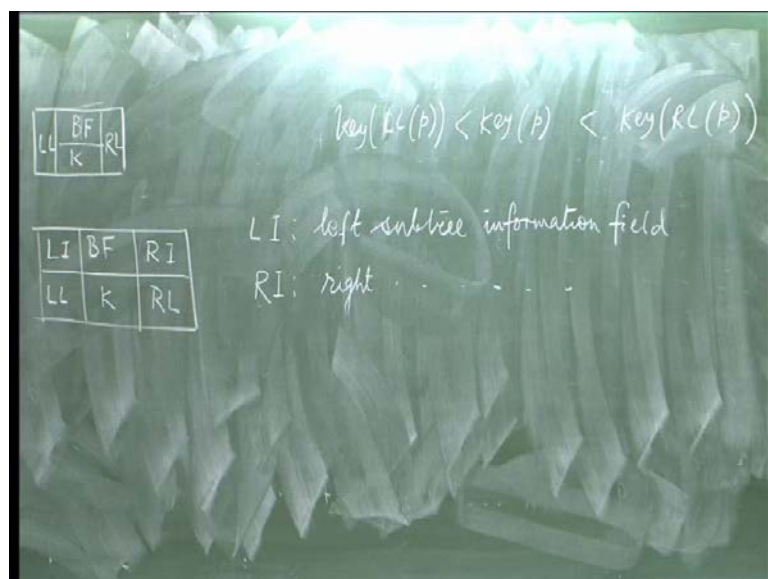 LL BF RL
K
key(LL(p)) < key(p) < key(RL(p))
LI BF RI
LL K RL
LI: left subtree information field
RI: right . . . . . .